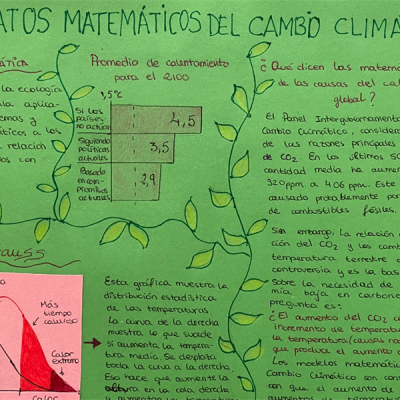 ATOS MATEMÁTICOS DEL CAMBIO CLIMÁ
ÁTICA
la ecología
la aplica-
emas y
ticos a los
relación
os con
Promedio de calentamiento
para el 2100
1,5°C
Si los
países
no actúan
4,5
Siguiendo
políticas
actuales
3,5
Basado
en com-
promisos
actuales
2,9
¿Qué dicen las matemá
de las causas del cal
global?
El Panel Intergubernamen
Cambio Climático, consider
de las razones principales
de CO2. En los últimos 50
cantidad media ha aumen
320ppm a 406 ppm. Este
causado probablemente por
de combustibles fósiles.
Sin embargo, la relación e
ción del CO2 y los camb
temperatura terrestre
controversia y es la bas
Sobre la necesidad de
mía baja en carbono
pregunta es:
¿El aumento del CO2 c
incremento de temperatu
la temperatura (causas na
que produce el aumento d
Los modelos matemátic
Cambio Climático con con
con que el aumento de
aumentos de temperatur
auss
Más
tiempo
caluroso
Calor
extremo
Calor
Esta gráfica muestra la
distribución estadística
de las temperaturas
La curva de la derecha
muestra lo que sucede
si aumenta la tempera-
tura media. Se desplaza
toda la curva a la derecha.
Eso hace que aumente la
altura en la cola derecha